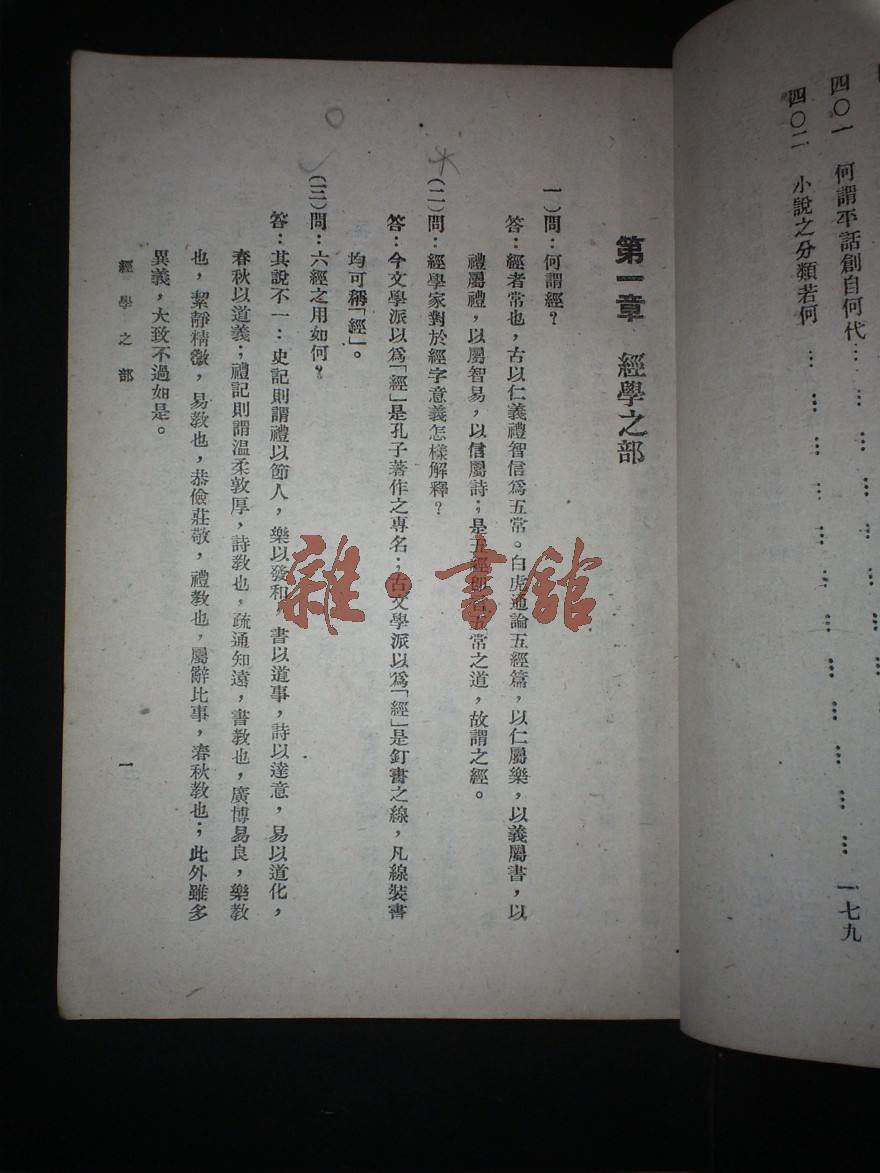 四〇一　何謂平話創自何代⋯ ⋯ ⋯ ⋯ ⋯ ⋯ ⋯ ⋯ ⋯ 一七九
四〇二　小說之分類若何 ⋯ ⋯ ⋯ ⋯ ⋯ ⋯ ⋯ ⋯ ⋯ ⋯
第一章　經學之部
一)問：何謂經？
答：經者常也，古以仁義禮智信爲五常。白虎通論五經篇，以仁屬樂，以義屬書，以
禮屬禮，以屬智易，以信屬詩；是五經卽含五常之道，故謂之經。
(二)問：經學家對於經字意義怎樣解釋？
答：今文學派以爲「經」是孔子著作之專名；古文學派以爲「經」是釘書之線，凡線裝書
均可稱「經」。
(三)問：六經之用如何？
答：其說不一：史記則謂禮以節人，樂以發和，書以道事，詩以達意，易以道化，
春秋以道義；禮記則謂溫柔敦厚，詩教也，疏通知遠，書教也，廣博易良，樂教
也，絜靜精微，易教也，恭儉莊敬，禮教也，屬辭比事，春秋教也；此外雖多
異義，大致不過如是。
經學之部
一
雜·書館